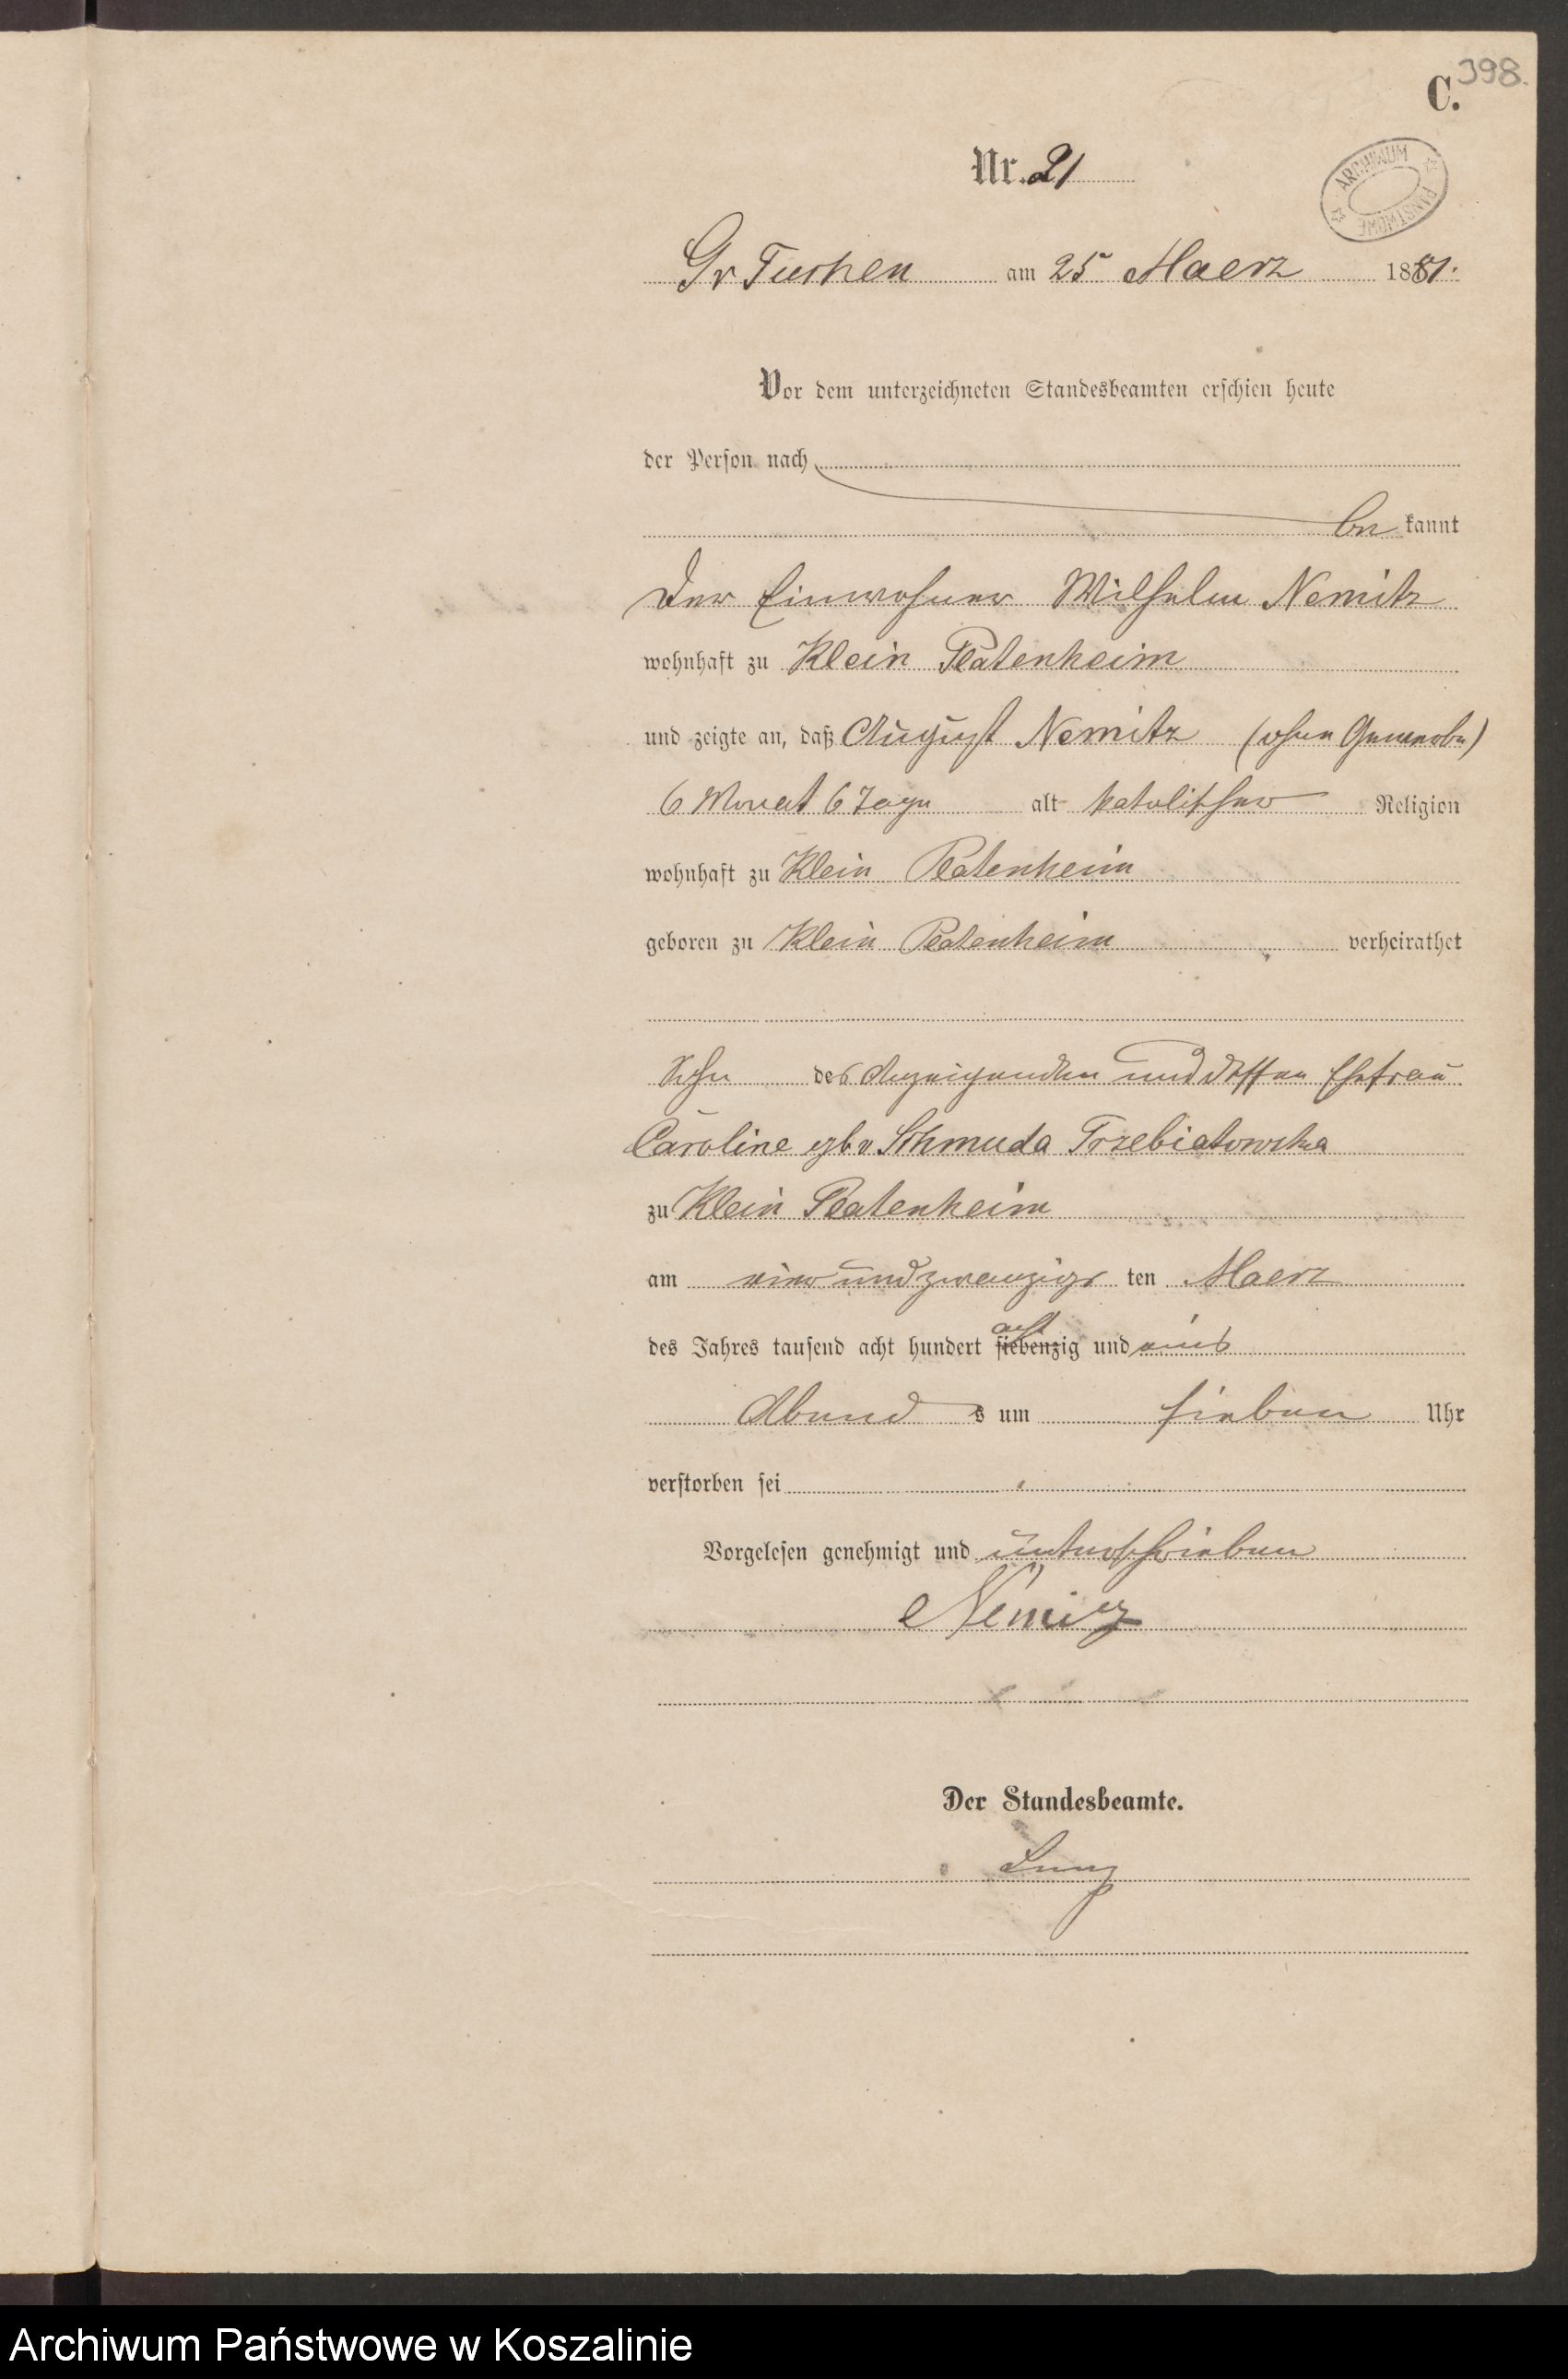 398.
C.
Nr. 21
ARCHIWUM PAŃSTWOWE
Gr Tuchen am 25 Maerz 1881.
Vor dem unterzeichneten Standesbeamten erschien heute
der Person nach
be kannt
der Einwohner Wilhelm Nemitz
wohnhaft zu Klein Platenheim
und zeigte an, daß August Nemitz (ohne Gewerbe)
6 Monat 6 Tage alt katolischer Religion
wohnhaft zu Klein Platenheim
geboren zu Klein Platenheim verheirathet
Sohn des Anzeigenden und dessen Ehefrau
Caroline geb v Schmuda Trzebiatowska
zu Klein Platenheim
am vier und zwanzigs ten Maerz
acht
des Jahres tausend acht hundert siebenzig und eins
Abend s um sieben Uhr
verstorben sei
Vorgelesen genehmigt und unterschrieben
Nemitz
Der Standesbeamte.
Archiwum Państwowe w Koszalinie